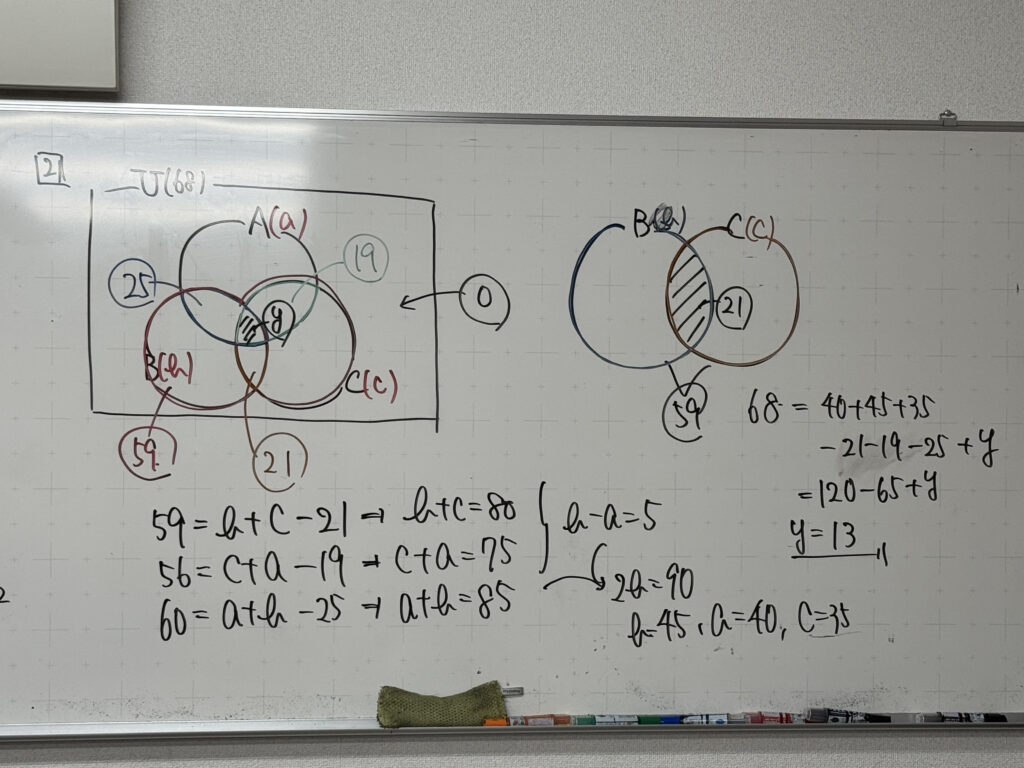 21
U(68)
A(a)
19
25
y
0
B(b)
C(c)
59
21
B(b)
C(c)
21
59
68 = 40+45+35
-21-19-25+y
=120-65+y
y=13
59=b+c-21→b+c=80
56=c+a-19→c+a=75
60=a+b-25→a+b=85
b-a=5
2b=90
b=45, a=40, c=35
2